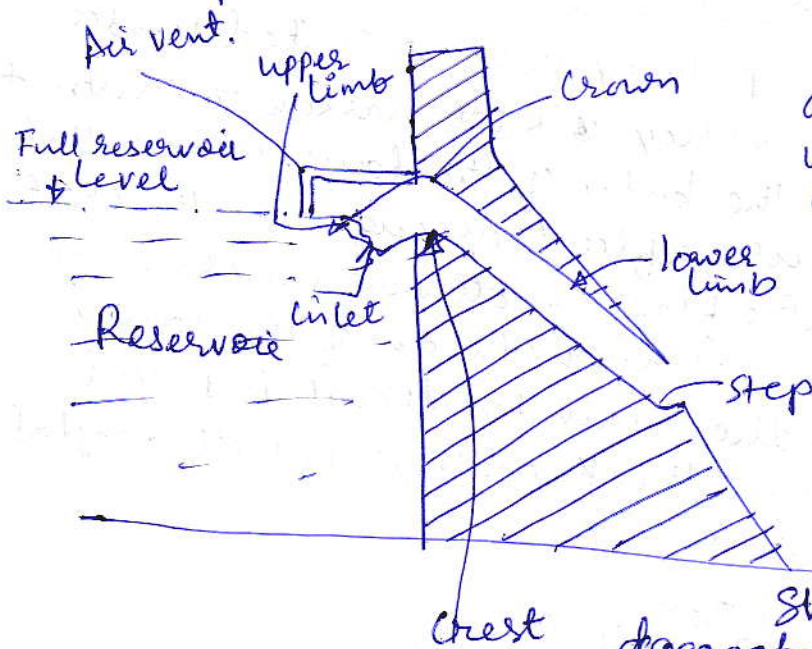 Air vent.
upper
limb
Crown
Full reservoir
Level
lower
limb
inlet
Reservoir
step
Crest